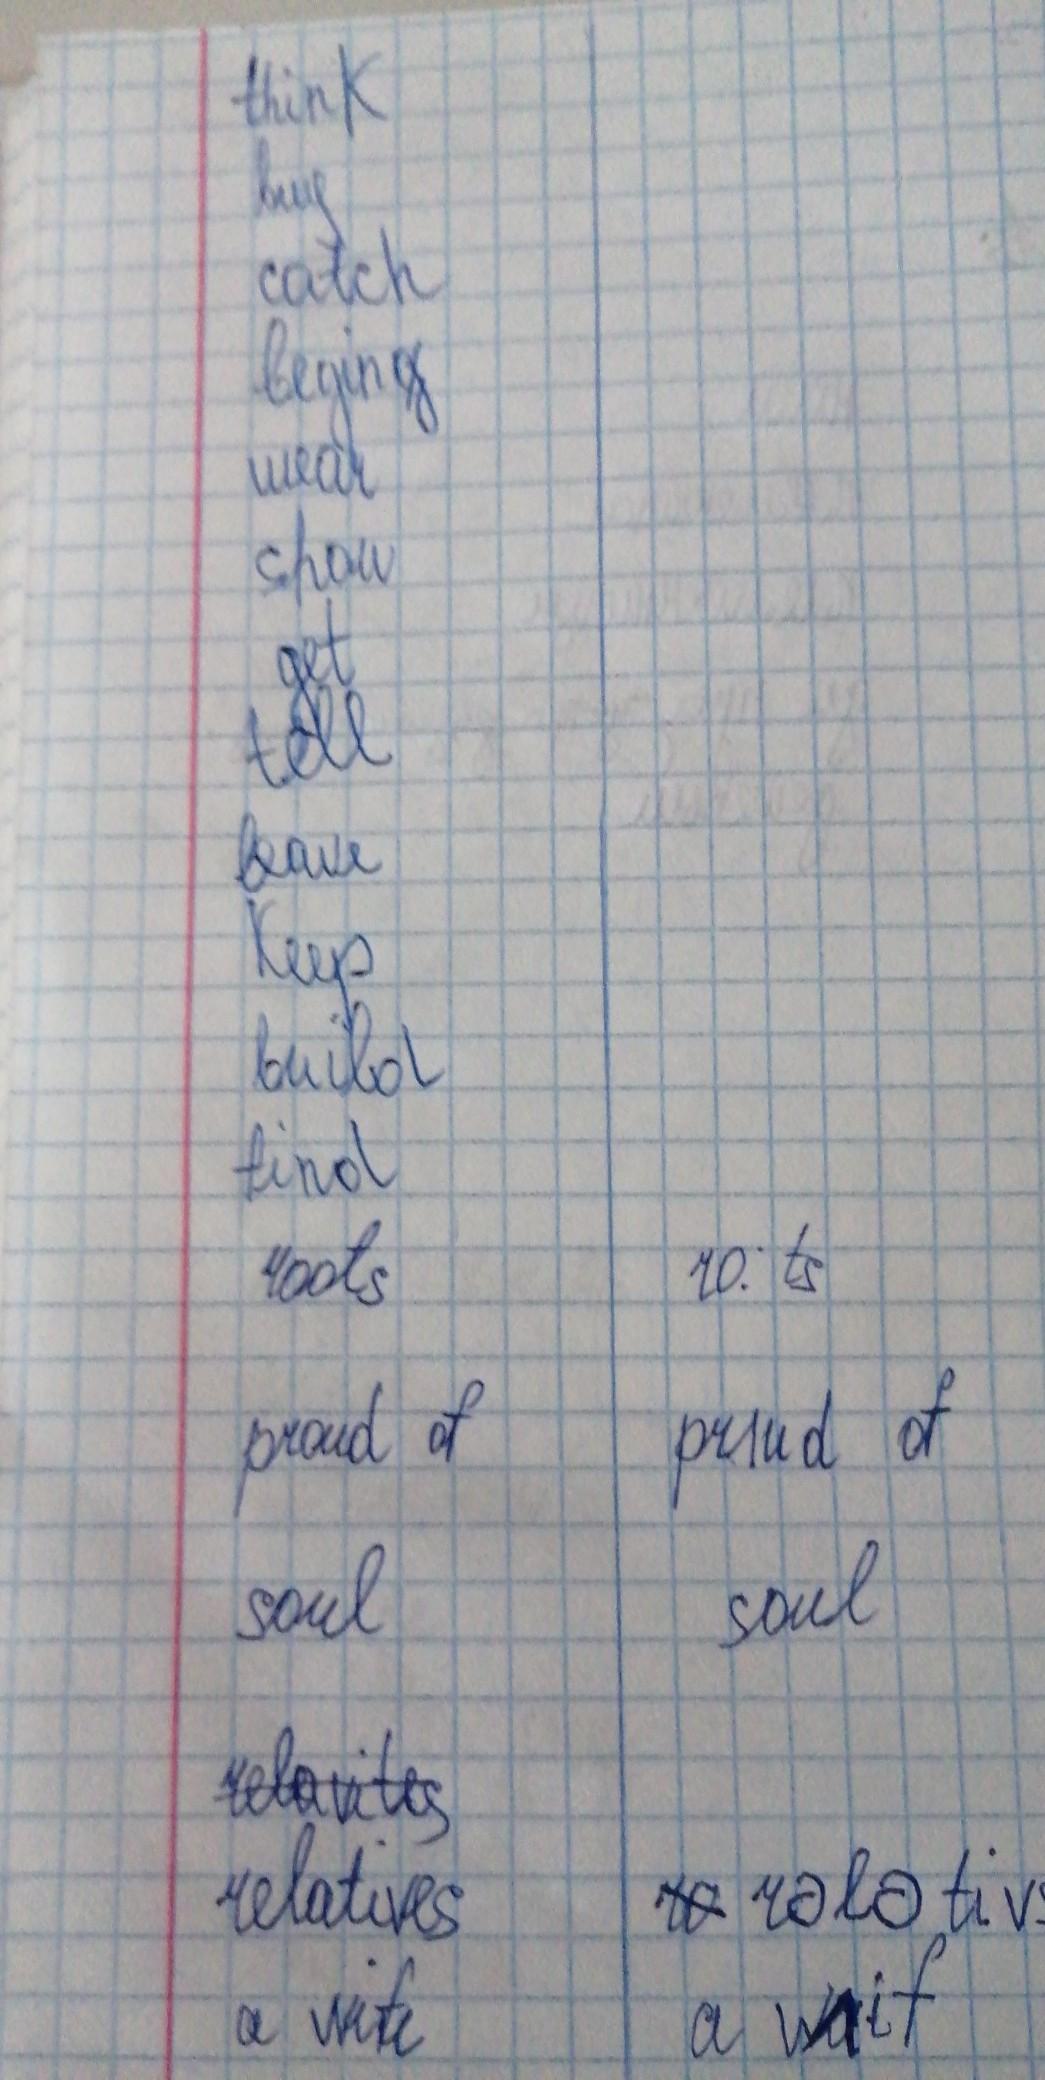 think
buy
catch
begin
wear
show
get
tell
leave
keep
build
find
roots ro: ts
proud of prıud of
soul soul
relavites
relatives rələtivs
a wife a waif